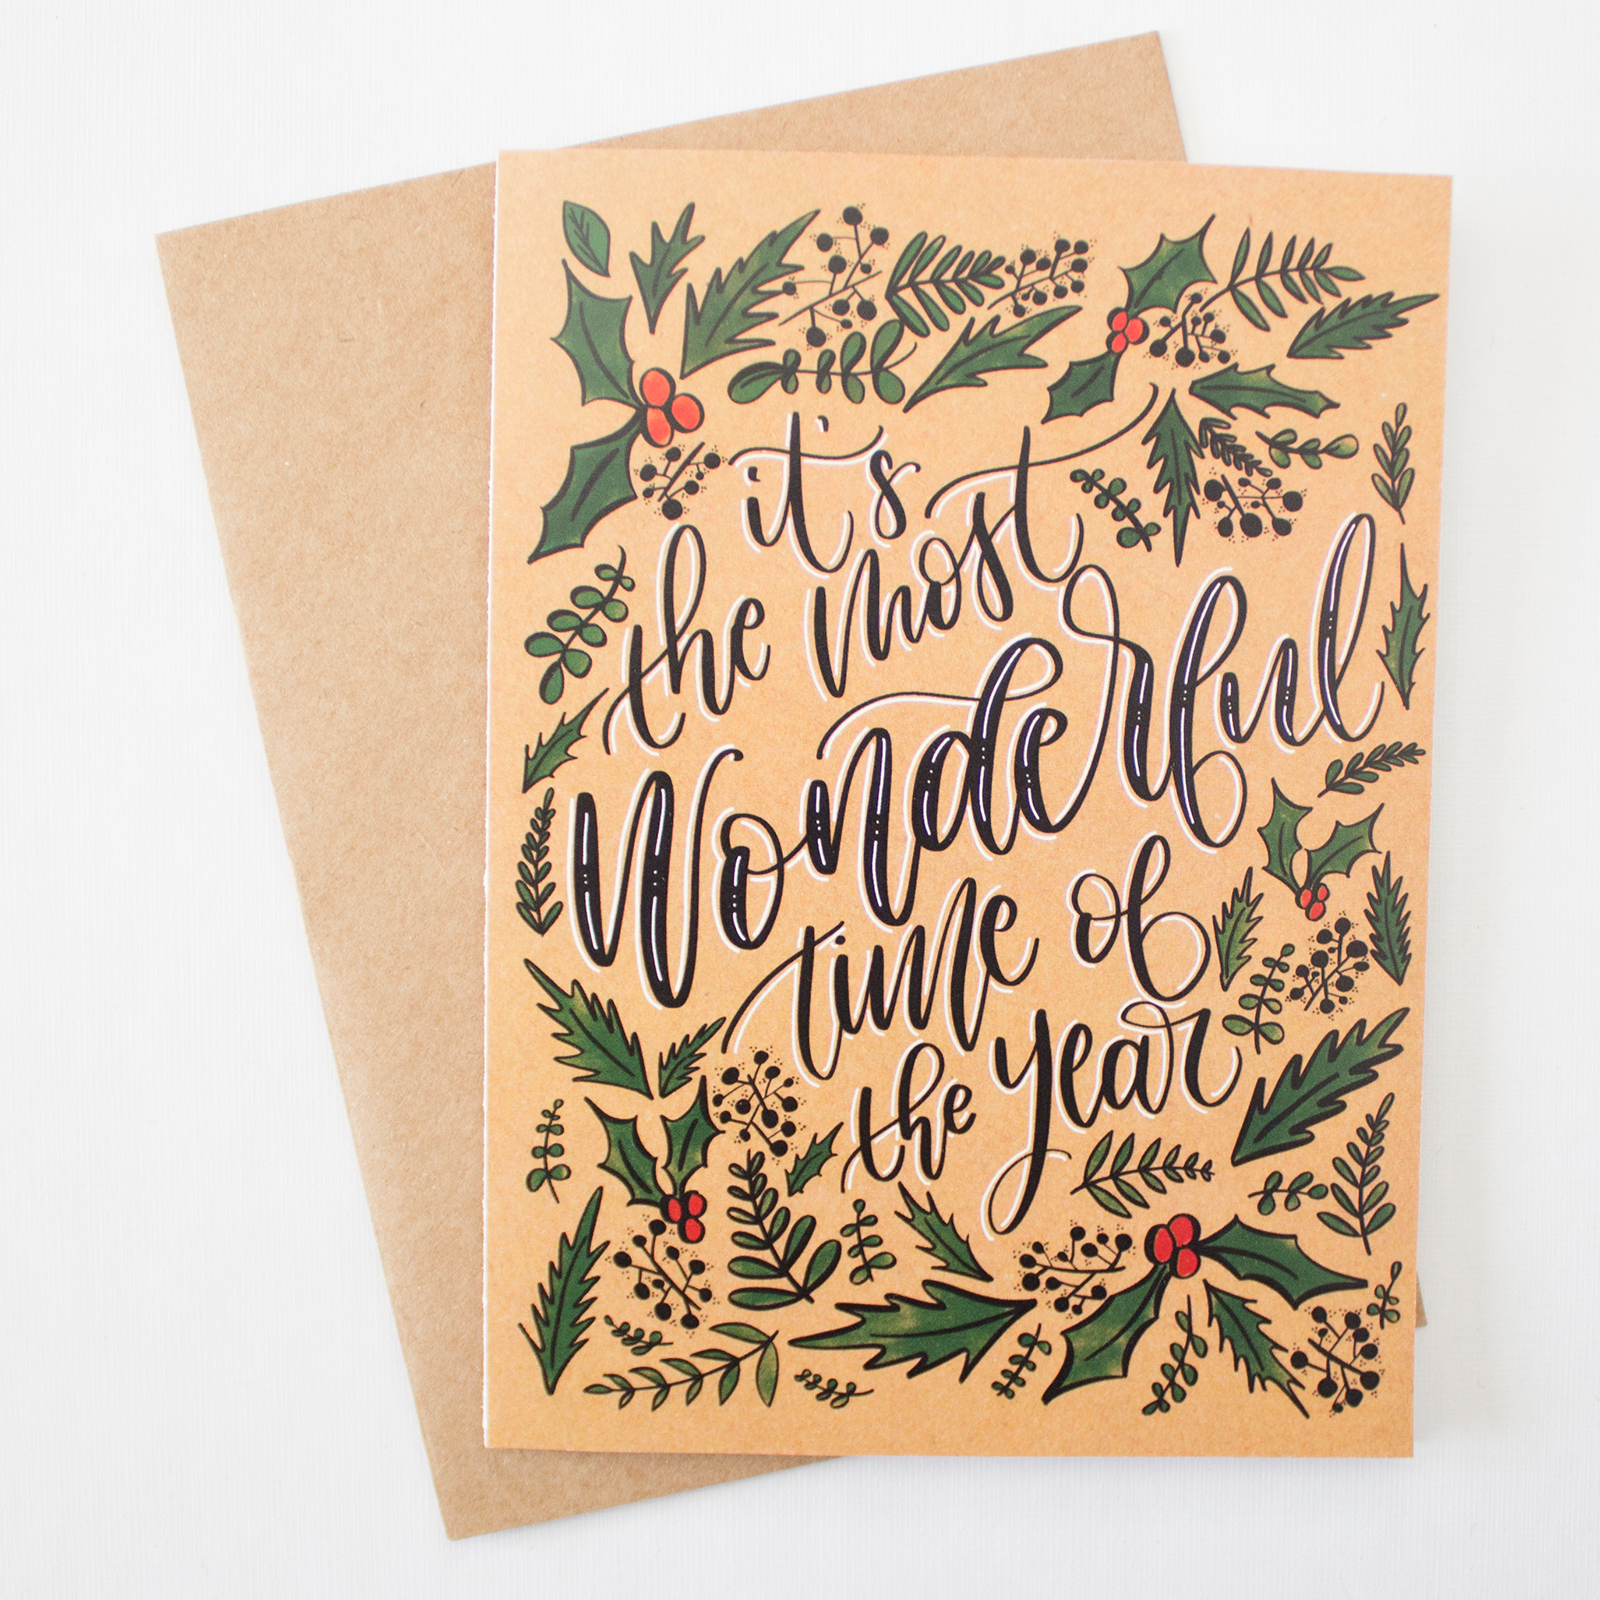 it's
the most
Wonderful
time of
the year